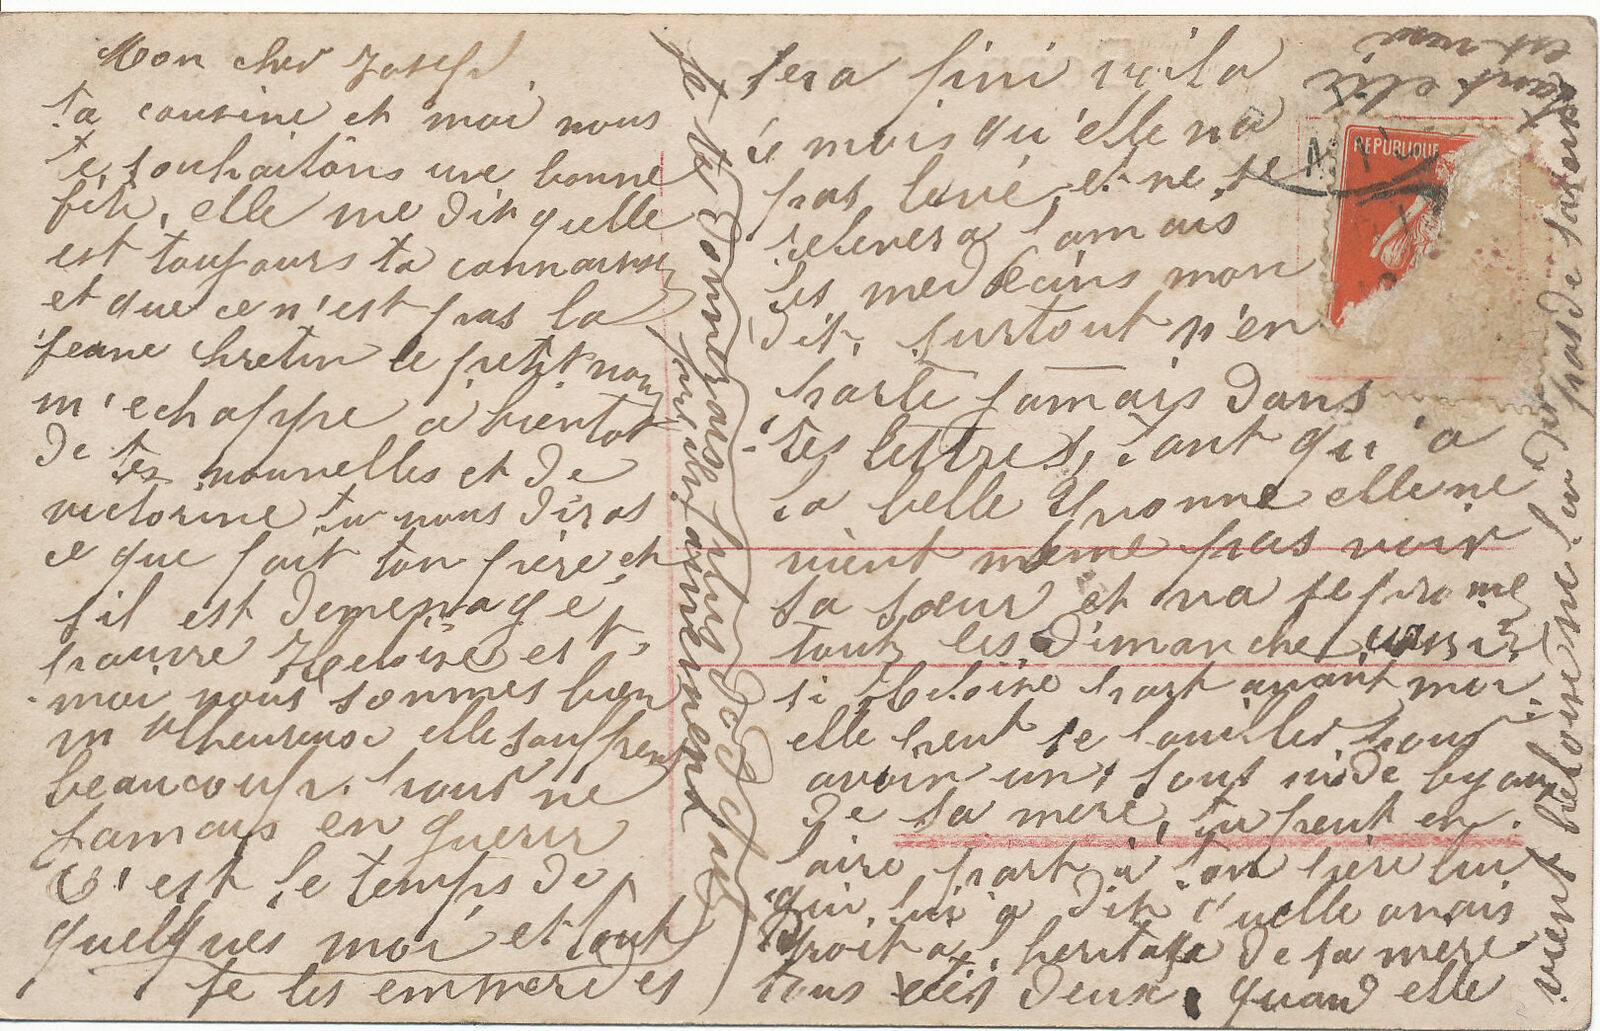 Mon cher Joseph
ta cousine et moi nous
te souhaitons une bonne
fête, elle me dit quelle
est toujours ta connaisse
et que ce n'est pas la
jeane chretin le petit nom
m'echappe a bientot
de tes nouvelles et de
victorine tu nous diras
ce que fait ton frère et
s'il est demenagé,
pauvre Heloise et
moi nous sommes bien
malheureuse elle souffrent
beaucoup. pour ne
jamais en guerir
C'est le temps de
quelques moi et tout
te les emmerdes
sera fini voila
mois qu'elle na
pas levé, et ne se
relevera jamais
les medecins mon
dit, surtout n'en
parle jamais dans
tes lettres, tant qu'a
la belle Yvonne elle ne
vient même pas voir
sa sœur et va se prome
tout les dimanche aussi
si Heloise part avant moi
elle peut se fouiller pour
avoir un sout ni de byoux
de sa mere, tu peut en
faire part à ton frère lui
qui lui a dit quelle avais
droit a l'heritage de sa mère
tous deux, quand elle
vient heloise ne lui dit pas de
tant elle
est
je te donnerais plus des
RÉPUBLIQUE